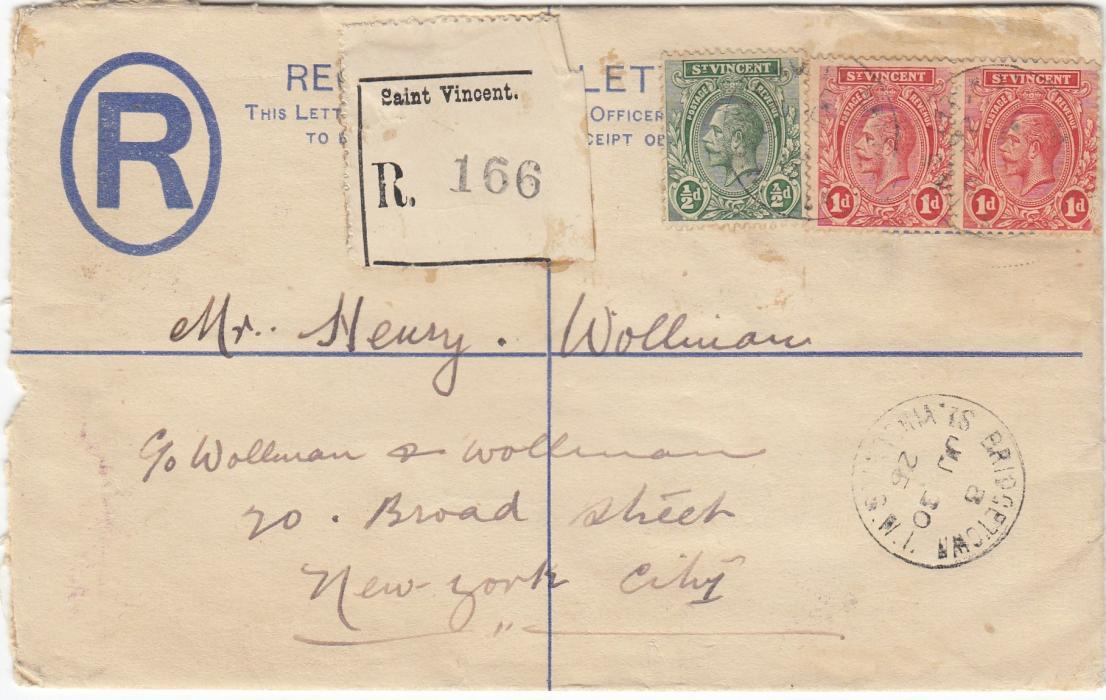 R
LET
THIS LETT
OFFICER
TO
CEIPT
Saint Vincent.
R. 166
ST VINCENT
POSTAGE REVENUE
½d ½d
ST VINCENT
POSTAGE REVENUE
1d 1d
ST VINCENT
POSTAGE REVENUE
1d 1d
Mr. Henry. Wollman
c/o Wollman & Wollman
20. Broad Street
New-York City
BRIDGETOWN
B
JU 30
26